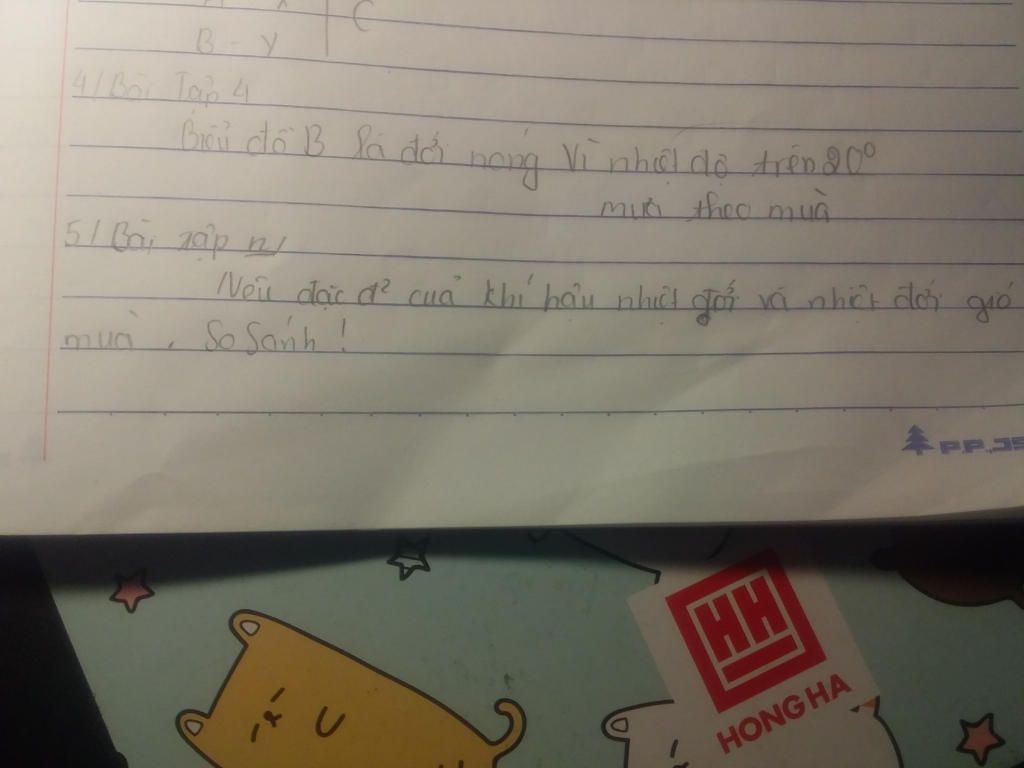 B - Y
C
4/ Bài Tập 4
Biểu đồ B là đới nóng Vì nhiệt độ trên 20⁰
mưa theo mùà
5/ Bài tập n/
Nêu đặc đ² cuả khí hậu nhiệt đới và nhiệt đới gió
mùà. So Sánh!
P.P.JS
HH
HONG HA